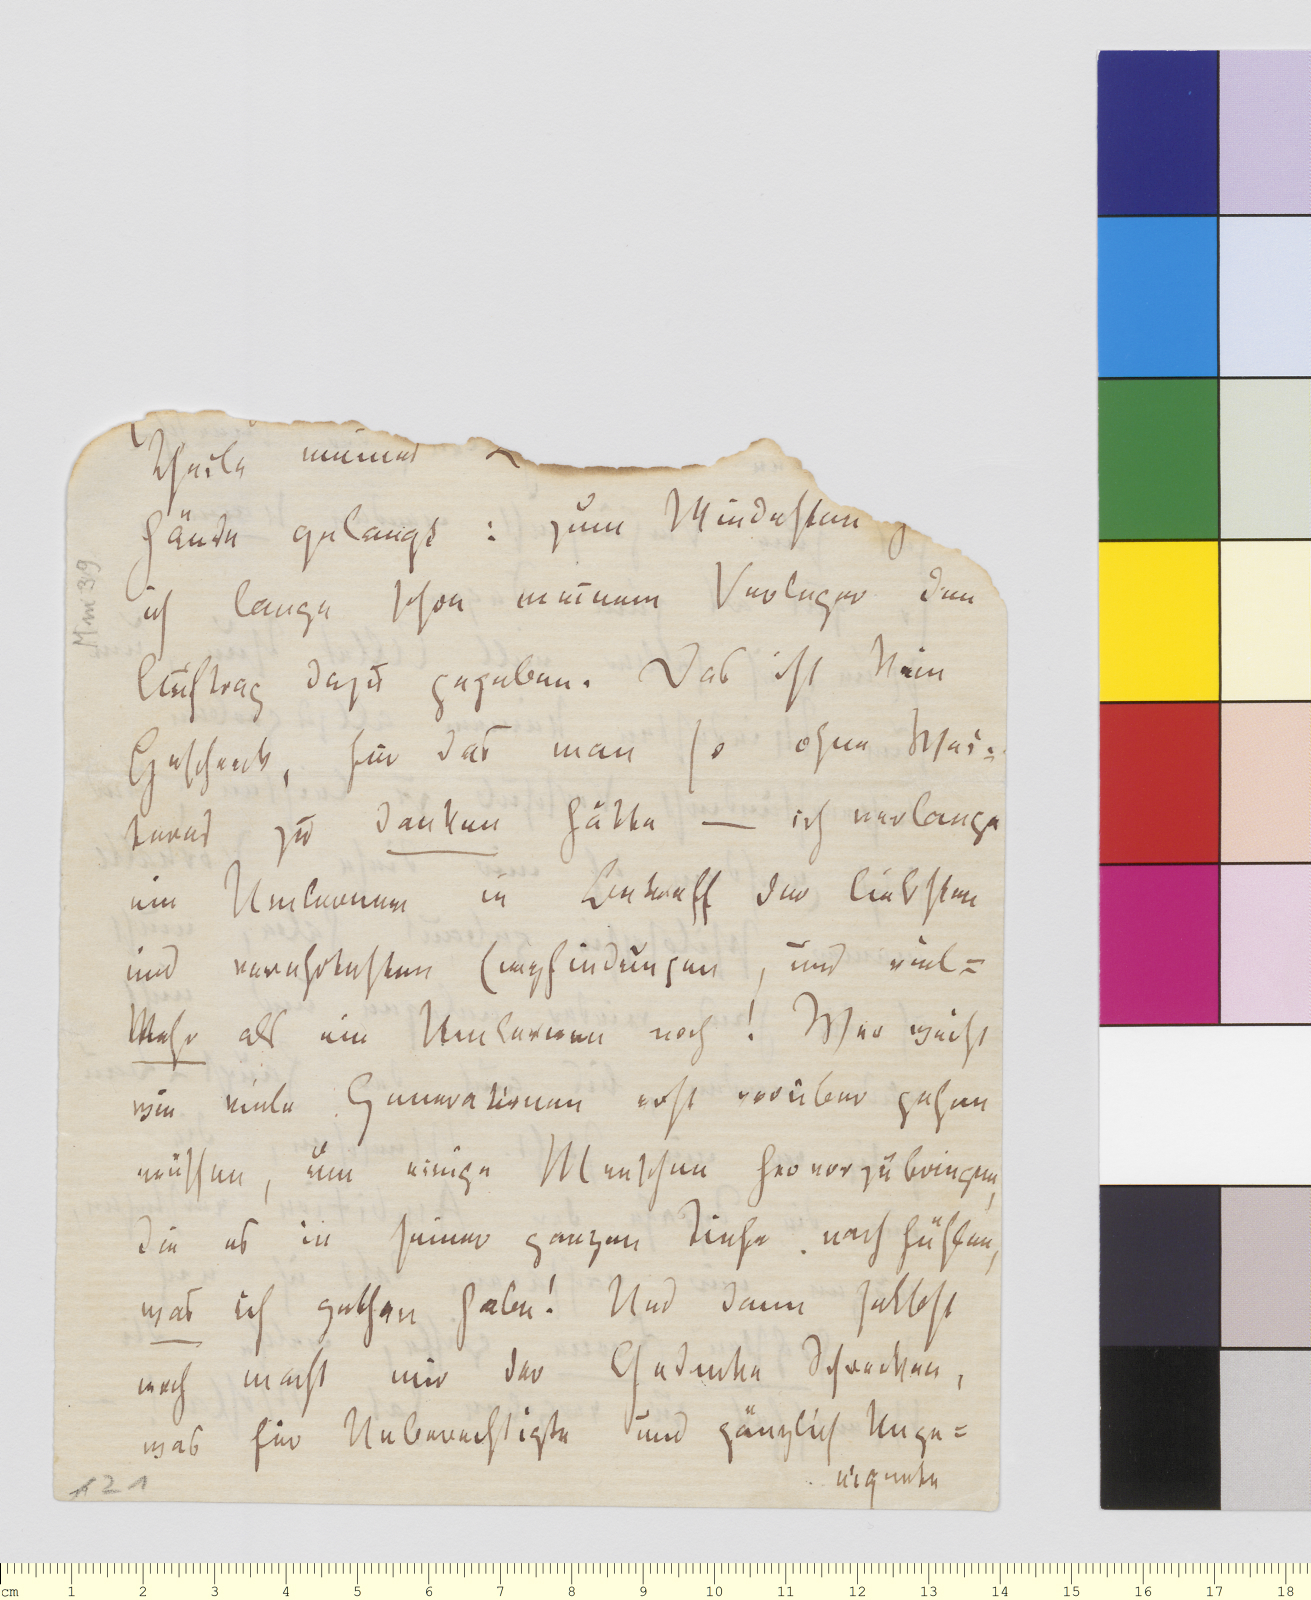 Theile meines
Hände gelangt: zum Mindesten
ich lange schon meinem Verleger den
Auftrag dazu gegeben. Das ist kein
Geschenk, für das man so ohne Wei-
teres zu danken hätte — ich verlange
ein Umlernen in Betreff der liebsten
und verehrtesten Empfindungen, und viel=
Mehr als ein Umlernen noch! Wer weiß
wie viele Generationen erst vorüber gehen
müssen, um einige Menschen hervorzubringen,
die es in seiner ganzen Tiefe nach fühlen,
was ich gethan habe! Und dann selbst
noch macht mir der Gedanke Schrecken,
was für Unberechtigte und gänzlich Unge=
eignete
Mm 39
121
cm 1 2 3 4 5 6 7 8 9 10 11 12 13 14 15 16 17 18